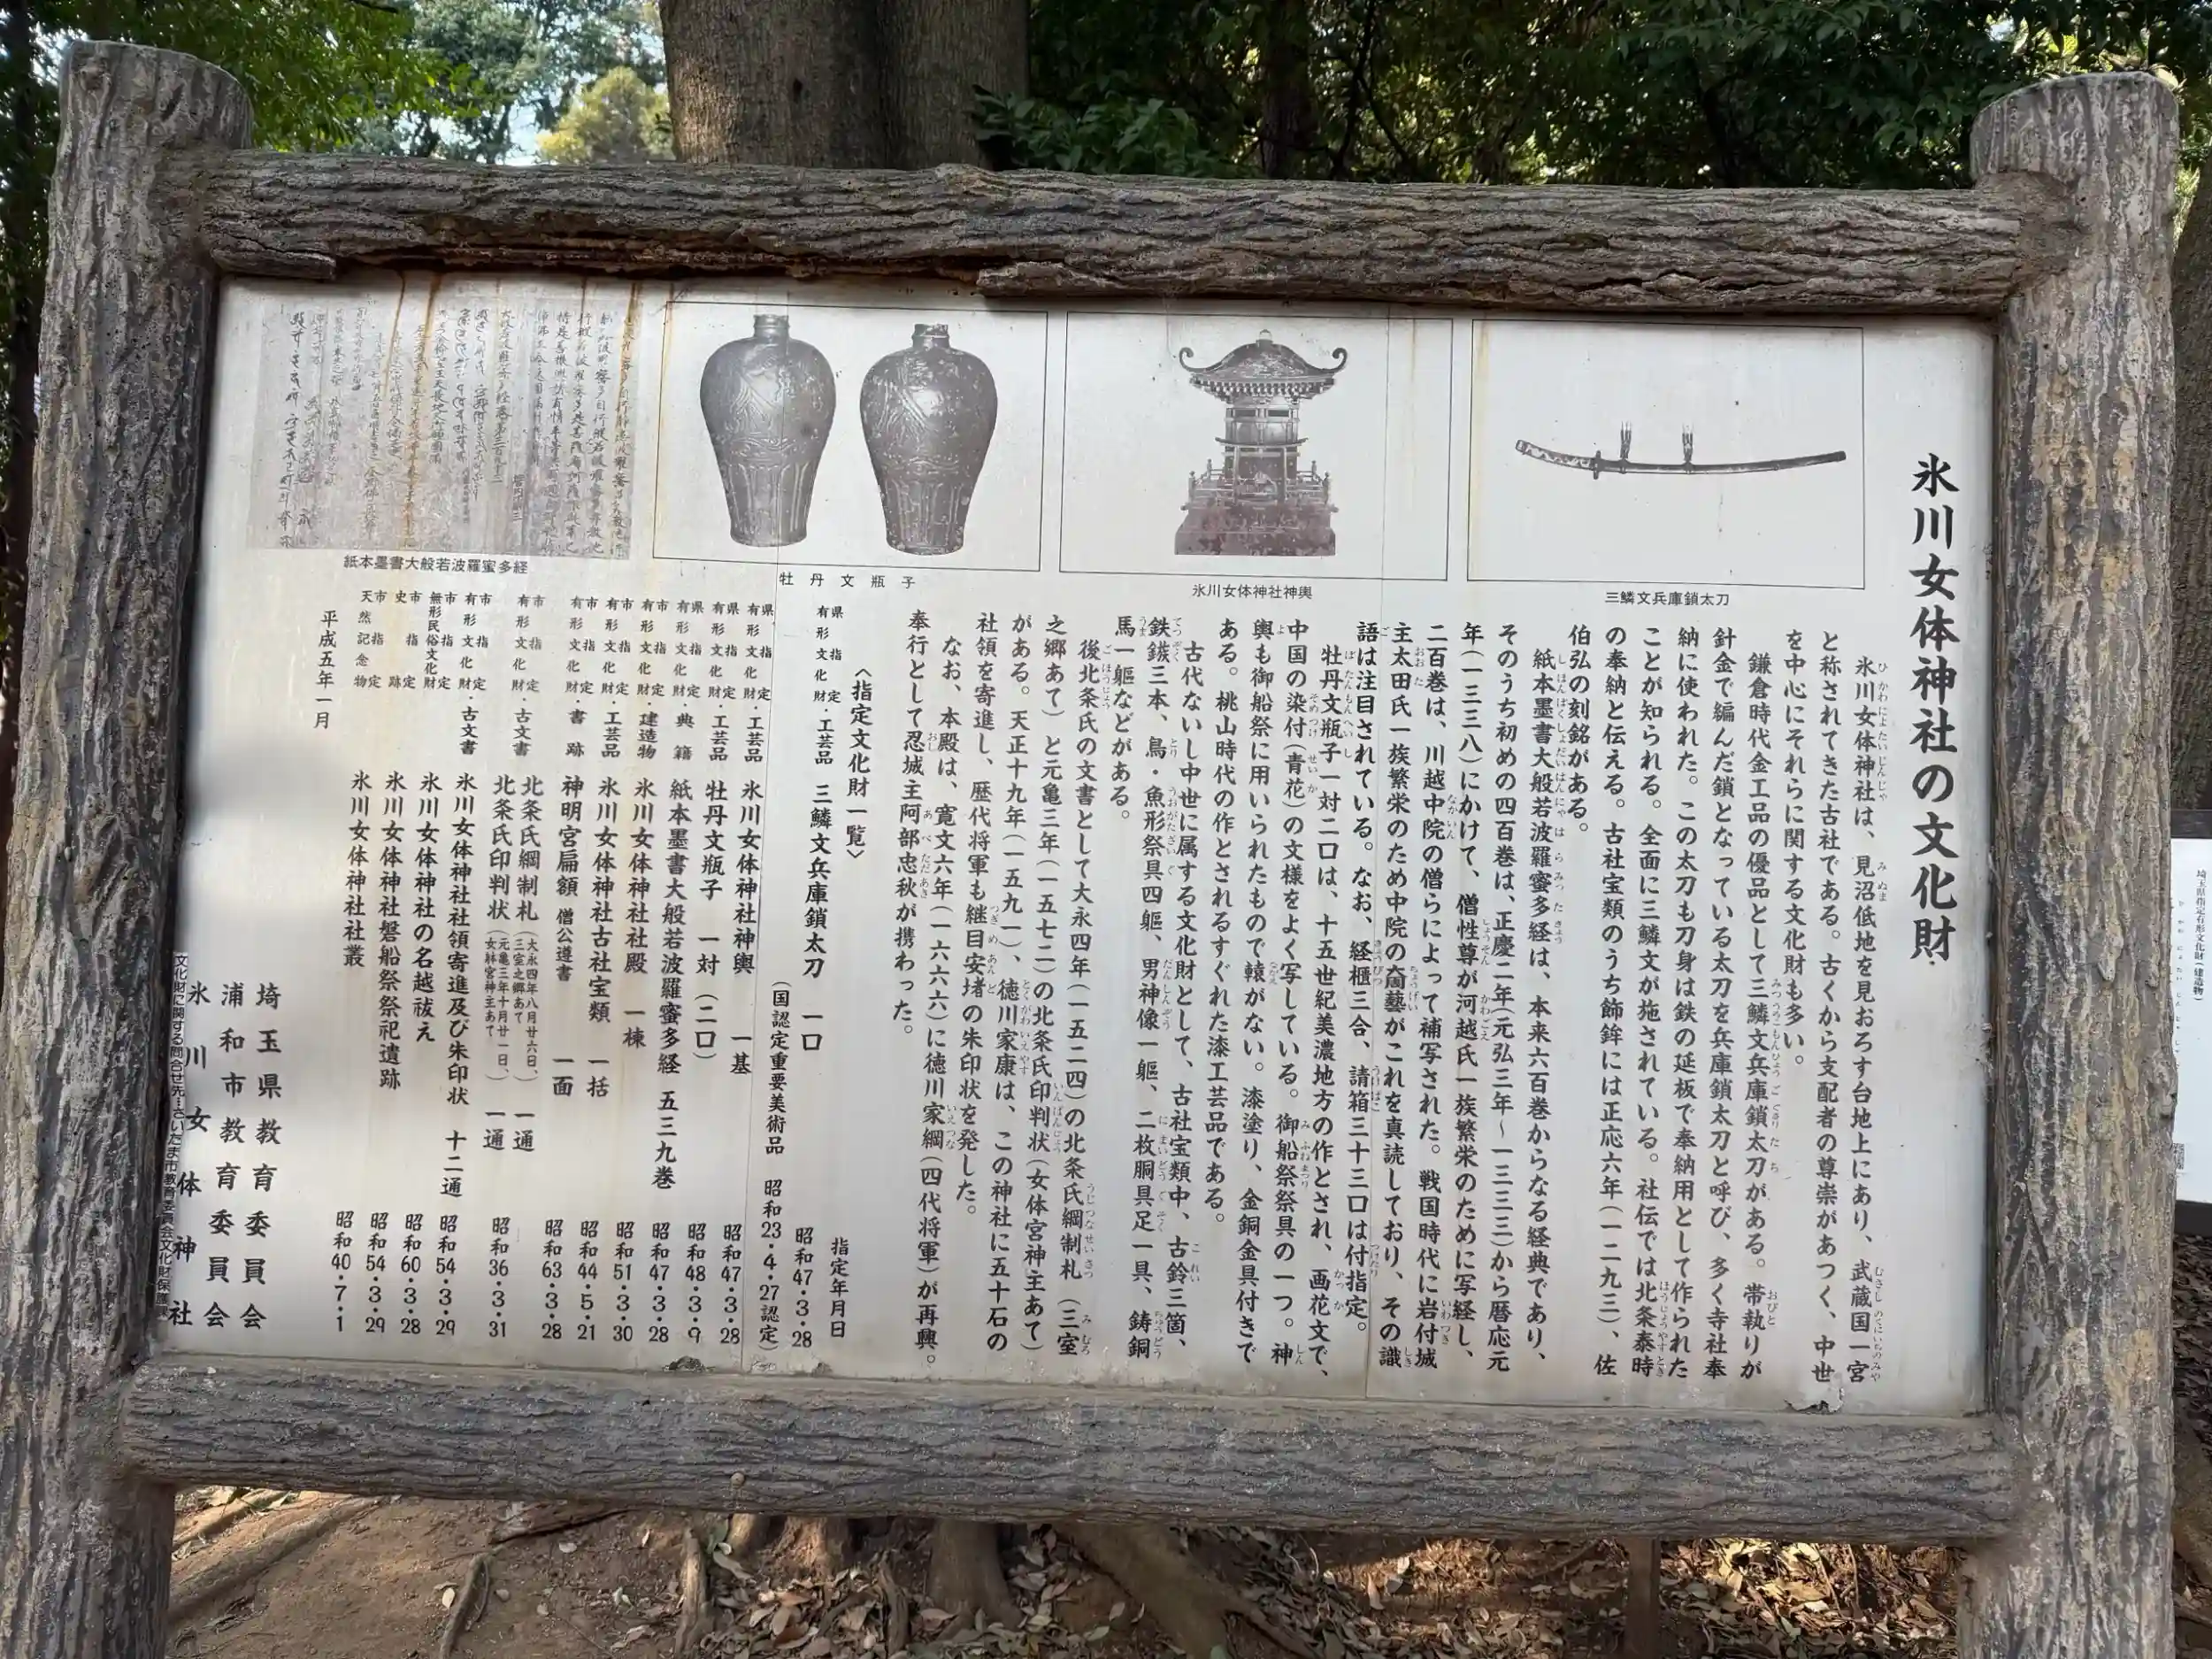 氷川女体神社の文化財
三鱗文兵庫鎖太刀
氷川女体神社神輿
牡丹文瓶子
紙本墨書大般若波羅蜜多経
氷川女体神社は、見沼低地を見おろす台地上にあり、武蔵国一宮
と称されてきた古社である。古くから支配者の尊崇があつく、中世
を中心にそれらに関する文化財も多い。
鎌倉時代金工品の優品として三鱗文兵庫鎖太刀がある。帯執りが
針金で編んだ鎖となっている太刀を兵庫鎖太刀と呼び、多く寺社奉
納に使われた。この太刀も刀身は鉄の延板で奉納用として作られた
ことが知られる。全面に三鱗文が施されている。社伝では北条泰時
の奉納と伝える。古社宝類のうち飾鉾には正応六年(一二九三)、佐
伯弘の刻銘がある。
紙本墨書大般若波羅蜜多経は、本来六百巻からなる経典であり、
そのうち初めの四百巻は、正慶二年(元弘三年~一三三三)から暦応元
年(一三三八)にかけて、僧性尊が河越氏一族繁栄のために写経し、
二百巻は、川越中院の僧らによって補写された。戦国時代に岩付城
主太田氏一族繁栄のため中院の奝藝がこれを真読しており、その識
語は注目されている。なお、経櫃三合、請箱三十三口は付指定。
牡丹文瓶子一対二口は、十五世紀美濃地方の作とされ、画花文で、
中国の染付(青花)の文様をよく写している。御船祭祭具の一つ。神
輿も御船祭に用いられたもので轅がない。漆塗り、金銅金具付きで
ある。桃山時代の作とされるすぐれた漆工芸品である。
古代ないし中世に属する文化財として、古社宝類中、古鈴三箇、
鉄鏃三本、鳥・魚形祭具四軀、男神像一軀、二枚胴具足一具、鋳銅
馬一軀などがある。
後北条氏の文書として大永四年(一五二四)の北条氏綱制札(三室
之郷あて)と元亀三年(一五七二)の北条氏印判状(女体宮神主あて)
がある。天正十九年(一五九一)、徳川家康は、この神社に五十石の
社領を寄進し、歴代将軍も継目安堵の朱印状を発した。
なお、本殿は、寛文六年(一六六六)に徳川家綱(四代将軍)が再興。
奉行として忍城主阿部忠秋が携わった。
〈指定文化財一覧〉 指定年月日
県指定有形文化財・工芸品 三鱗文兵庫鎖太刀 一口 昭和47・3・28
(国認定重要美術品 昭和23・4・27認定)
県指定有形文化財・工芸品 氷川女体神社神輿 一基 昭和47・3・28
県指定有形文化財・工芸品 牡丹文瓶子 一対(二口) 昭和48・3・9
県指定有形文化財・典籍 紙本墨書大般若波羅蜜多経 五三九巻 昭和47・3・28
市指定有形文化財・建造物 氷川女体神社社殿 一棟 昭和51・3・30
市指定有形文化財・工芸品 氷川女体神社古社宝類 一括 昭和44・5・21
市指定有形文化財・書跡 神明宮扁額 僧公遵書 一面 昭和63・3・28
市指定有形文化財・古文書 北条氏綱制札(大永四年八月廿六日、三室之郷あて) 一通
北条氏印判状(元亀三年十月廿一日、女躰宮神主あて) 一通 昭和36・3・31
市指定有形文化財・古文書 氷川女体神社社領寄進及び朱印状 十二通 昭和54・3・29
市指定無形民俗文化財 氷川女体神社の名越祓え 昭和60・3・28
市指定史跡 氷川女体神社磐船祭祭祀遺跡 昭和54・3・29
市指定天然記念物 氷川女体神社社叢 昭和40・7・1
平成五年一月
埼玉県教育委員会
浦和市教育委員会
氷川女体神社
文化財に関する問合せ先…さいたま市教育委員会文化財保護
埼玉県指定有形文化財(建造物)